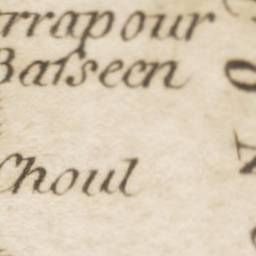 rrapour
Basseen
Choul